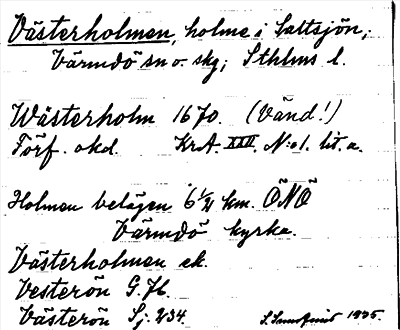 Västerholmen, holme i Saltsjön,
Värmdö sn o. skg; Sthlms l.
Wästerholm 1670. (Vänd!)
Förf. okd. KrA. XXII. N:o 1. lit. a.
Holmen belägen 6 1/2 km. ÖNÖ
Värmdö kyrka.
Västerholmen ek.
Vesterön G.
Västerön Sj. 234.
1935.